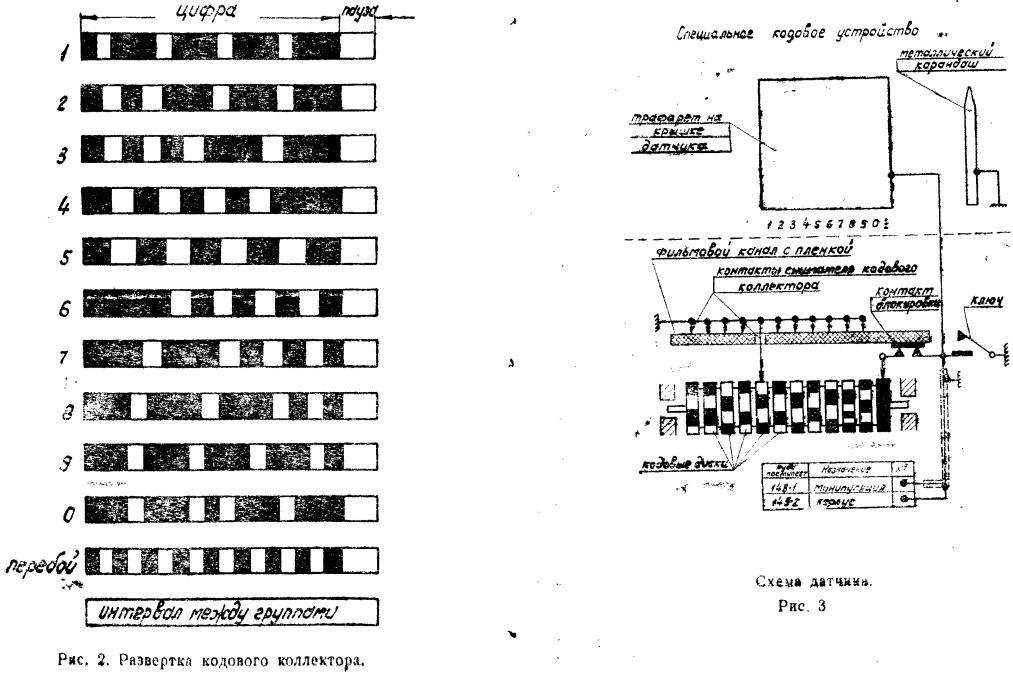 цифра
пауза
1
2
3
4
5
6
7
8
9
0
перебой
интервал между группами
Рис. 2. Развертка кодового коллектора.
Специальное кодовое устройство
металлический
карандаш
трафарет на
крышке
датчика
1 2 3 4 5 6 7 8 9 0
фильмовой канал с пленкой
контакты снимателя кодового
коллектора
контакт
блокировки
ключ
кодовые диски
Куда
поступает
Назначение
148-1
Манипуляция
148-2
корпус
Схема датчика.
Рис. 3